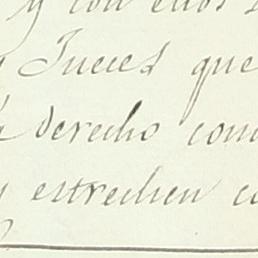 y con ellos
Jueces que
derecho com
estrechen co